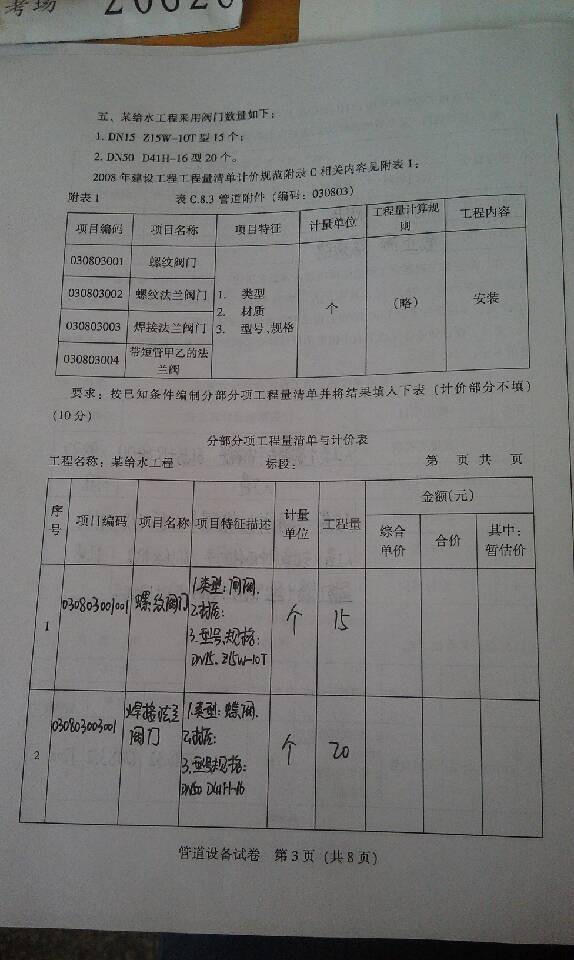 考场
五、某给水工程采用阀门数量如下:
1. DN15 Z15W-10T 型 15 个;
2. DN50 D41H-16 型 20 个。
2008 年建设工程工程量清单计价规范附表 C 相关内容见附表 1:
附表 1 表 C.8.3 管道附件(编码:030803)
项目编码 项目名称 项目特征 计量单位 工程量计算规则 工程内容
030803001 螺纹阀门
030803002 螺纹法兰阀门
030803003 焊接法兰阀门
030803004 带短管甲乙的法兰阀
1. 类型
2. 材质
3. 型号、规格
个
(略)
安装
要求:按已知条件编制分部分项工程量清单并将结果填入下表(计价部分不填)
(10 分)
分部分项工程量清单与计价表
工程名称:某给水工程 标段: 第 页 共 页
序号 项目编码 项目名称 项目特征描述 计量单位 工程量 金额(元)
综合单价 合价 其中:暂估价
1 030803001001 螺纹阀门
1.类型:闸阀.
2.材质:
3.型号、规格:
DN15. Z15W-10T
个 15
2 030803003001 焊接法兰阀门
1.类型:蝶阀.
2.材质:
3.型号规格:
DN50 D41H-16
个 20
管道设备试卷 第 3 页(共 8 页)